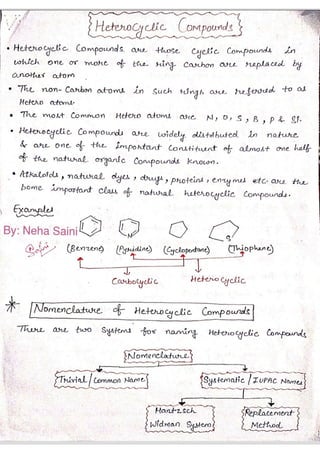 Heterocyclic Compounds
• Heterocyclic Compounds are those Cyclic Compounds in
which one or more of the ring Carbon are replaced by
another atom.
• The non-Carbon atoms in such rings are referred to as
Hetero atoms.
• The most Common Hetero atoms are N, O, S, B, P & Si.
• Heterocyclic Compounds are widely distributed in nature
& are one of the important Constituent of almost one half
of the natural organic Compounds known.
• Alkaloids, natural dyes, drugs, proteins, enzymes etc are the
some important class of natural heterocyclic Compounds.
Examples
By: Neha Saini
N
S
(Benzene) (Pyridine) (Cyclopentane) (Thiophene)
Carbocyclic Heterocyclic
* Nomenclature of Heterocyclic Compounds
There are two Systems for naming Heterocyclic Compounds
Nomenclature
Trivial / Common Name Systematic / IUPAC Names
Hantzsch Replacement
Widman System Method